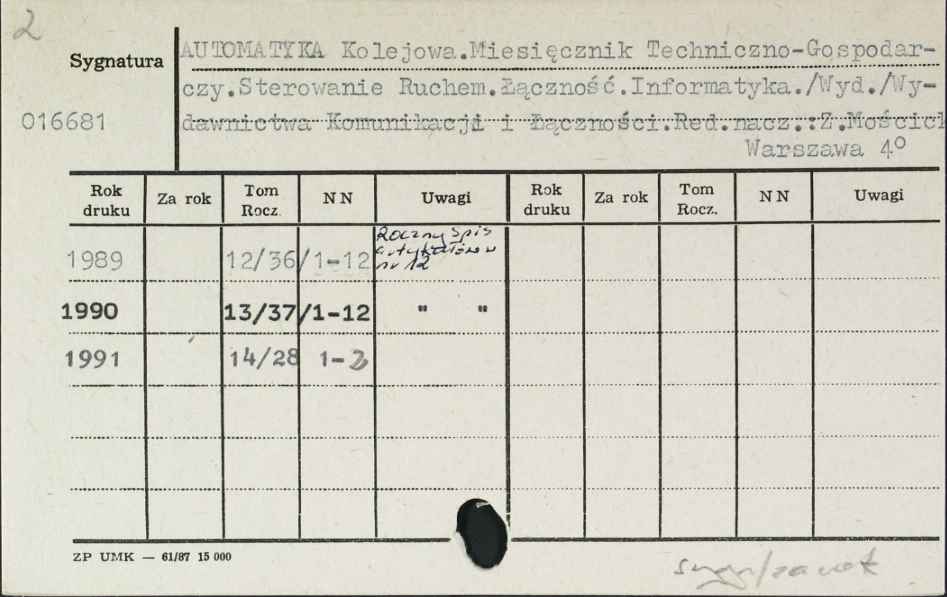 2
Sygnatura
016681
AUTOMATYKA Kolejowa.Miesięcznik Techniczno-Gospodar-
czy.Sterowanie Ruchem.Łączność.Informatyka./Wyd./Wy-
dawnictwa Komunikacji i Łączności.Red.nacz.:Z.Mościck
Warszawa 4º
Rok druku Za rok Tom Rocz. NN Uwagi Rok druku Za rok Tom Rocz. NN Uwagi
1989 12/36/1-12 Roczny spis artykułów w nr 12
1990 13/37/1-12 " "
1991 14/28 1-3
ZP UMK — 61/87 15 000